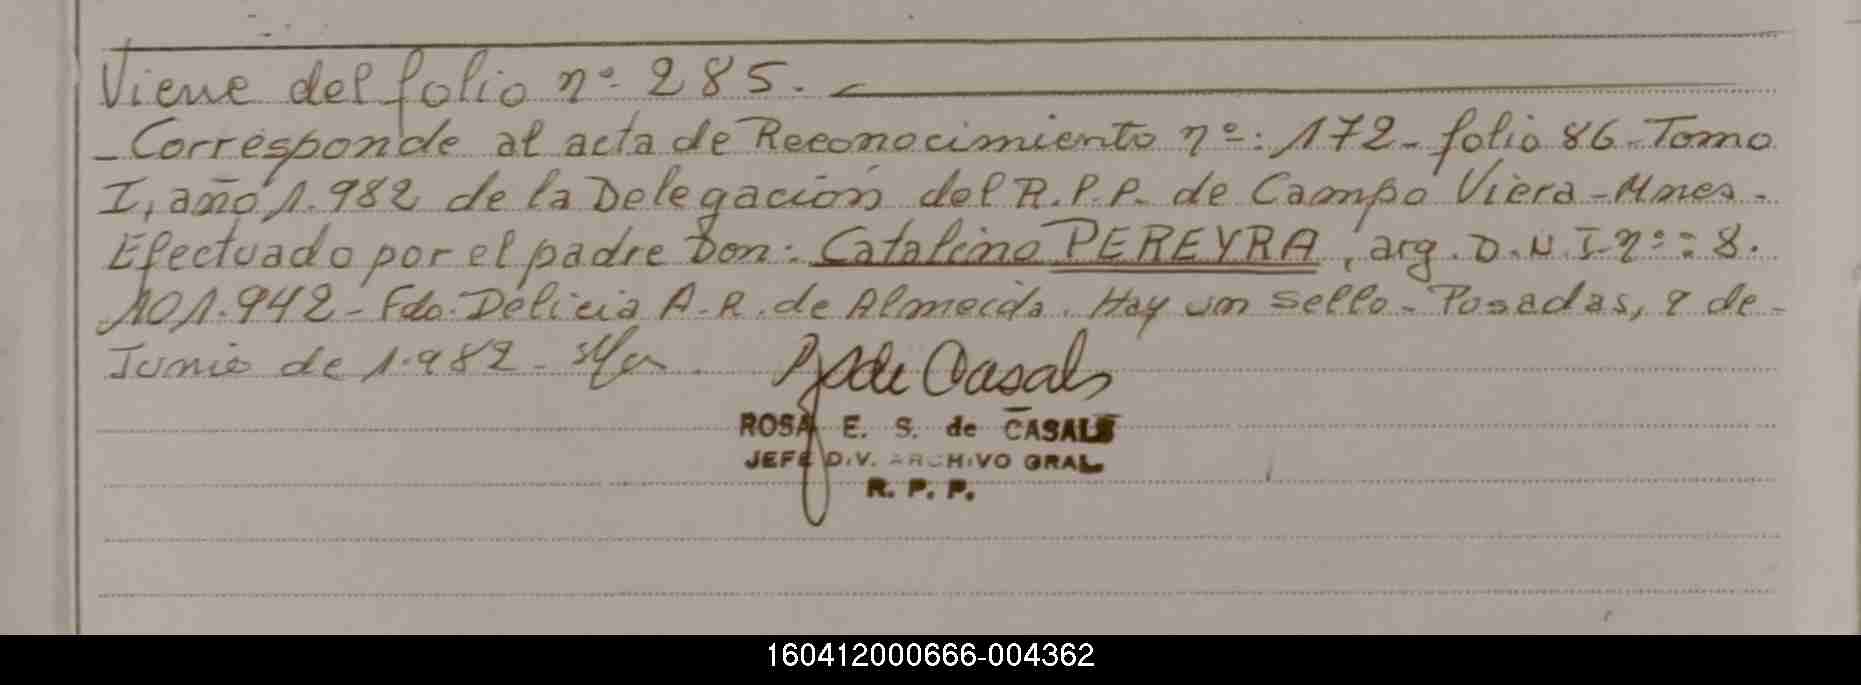 Viene del folio nº 285.
- Corresponde al acta de Reconocimiento nº: 172 - folio 86 - Tomo
I, año 1.982 de la Delegación del R.P.P. de Campo Viera - Mnes -
Efectuado por el padre Don: Catalino PEREYRA, arg. D.N.I. nº: 8.
101.942 - Fdo. Delicia A. R. de Almeida. Hay un sello - Posadas, 2 de -
Junio de 1.982 -
de Casals
ROSA E. S. de CASALS
JEFE DIV. ARCHIVO GRAL
R. P. P.
160412000666-004362